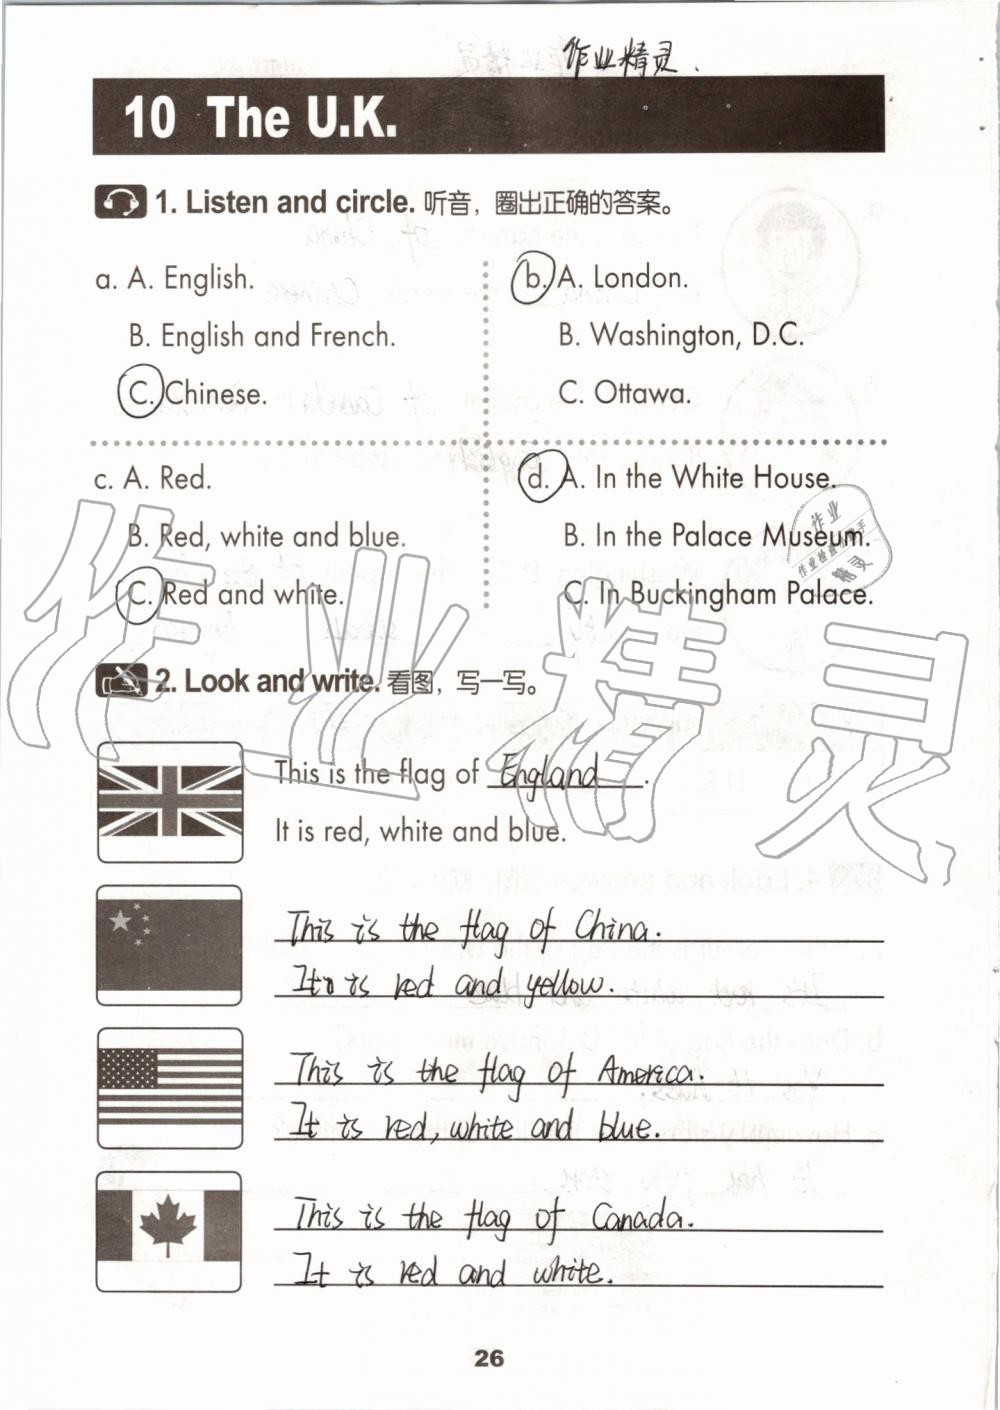 作业精灵.
10 The U.K.
1. Listen and circle. 听音，圈出正确的答案。
a. A. English.
B. English and French.
C. Chinese.
b. A. London.
B. Washington, D.C.
C. Ottawa.
c. A. Red.
B. Red, white and blue.
C. Red and white.
d. A. In the White House.
B. In the Palace Museum.
C. In Buckingham Palace.
作业
作业检查小助手
精灵
作业精灵
2. Look and write. 看图，写一写。
This is the flag of England.
It is red, white and blue.
This is the flag of China.
It is red and yellow.
This is the flag of America.
It is red, white and blue.
This is the flag of Canada.
It is red and white.
26